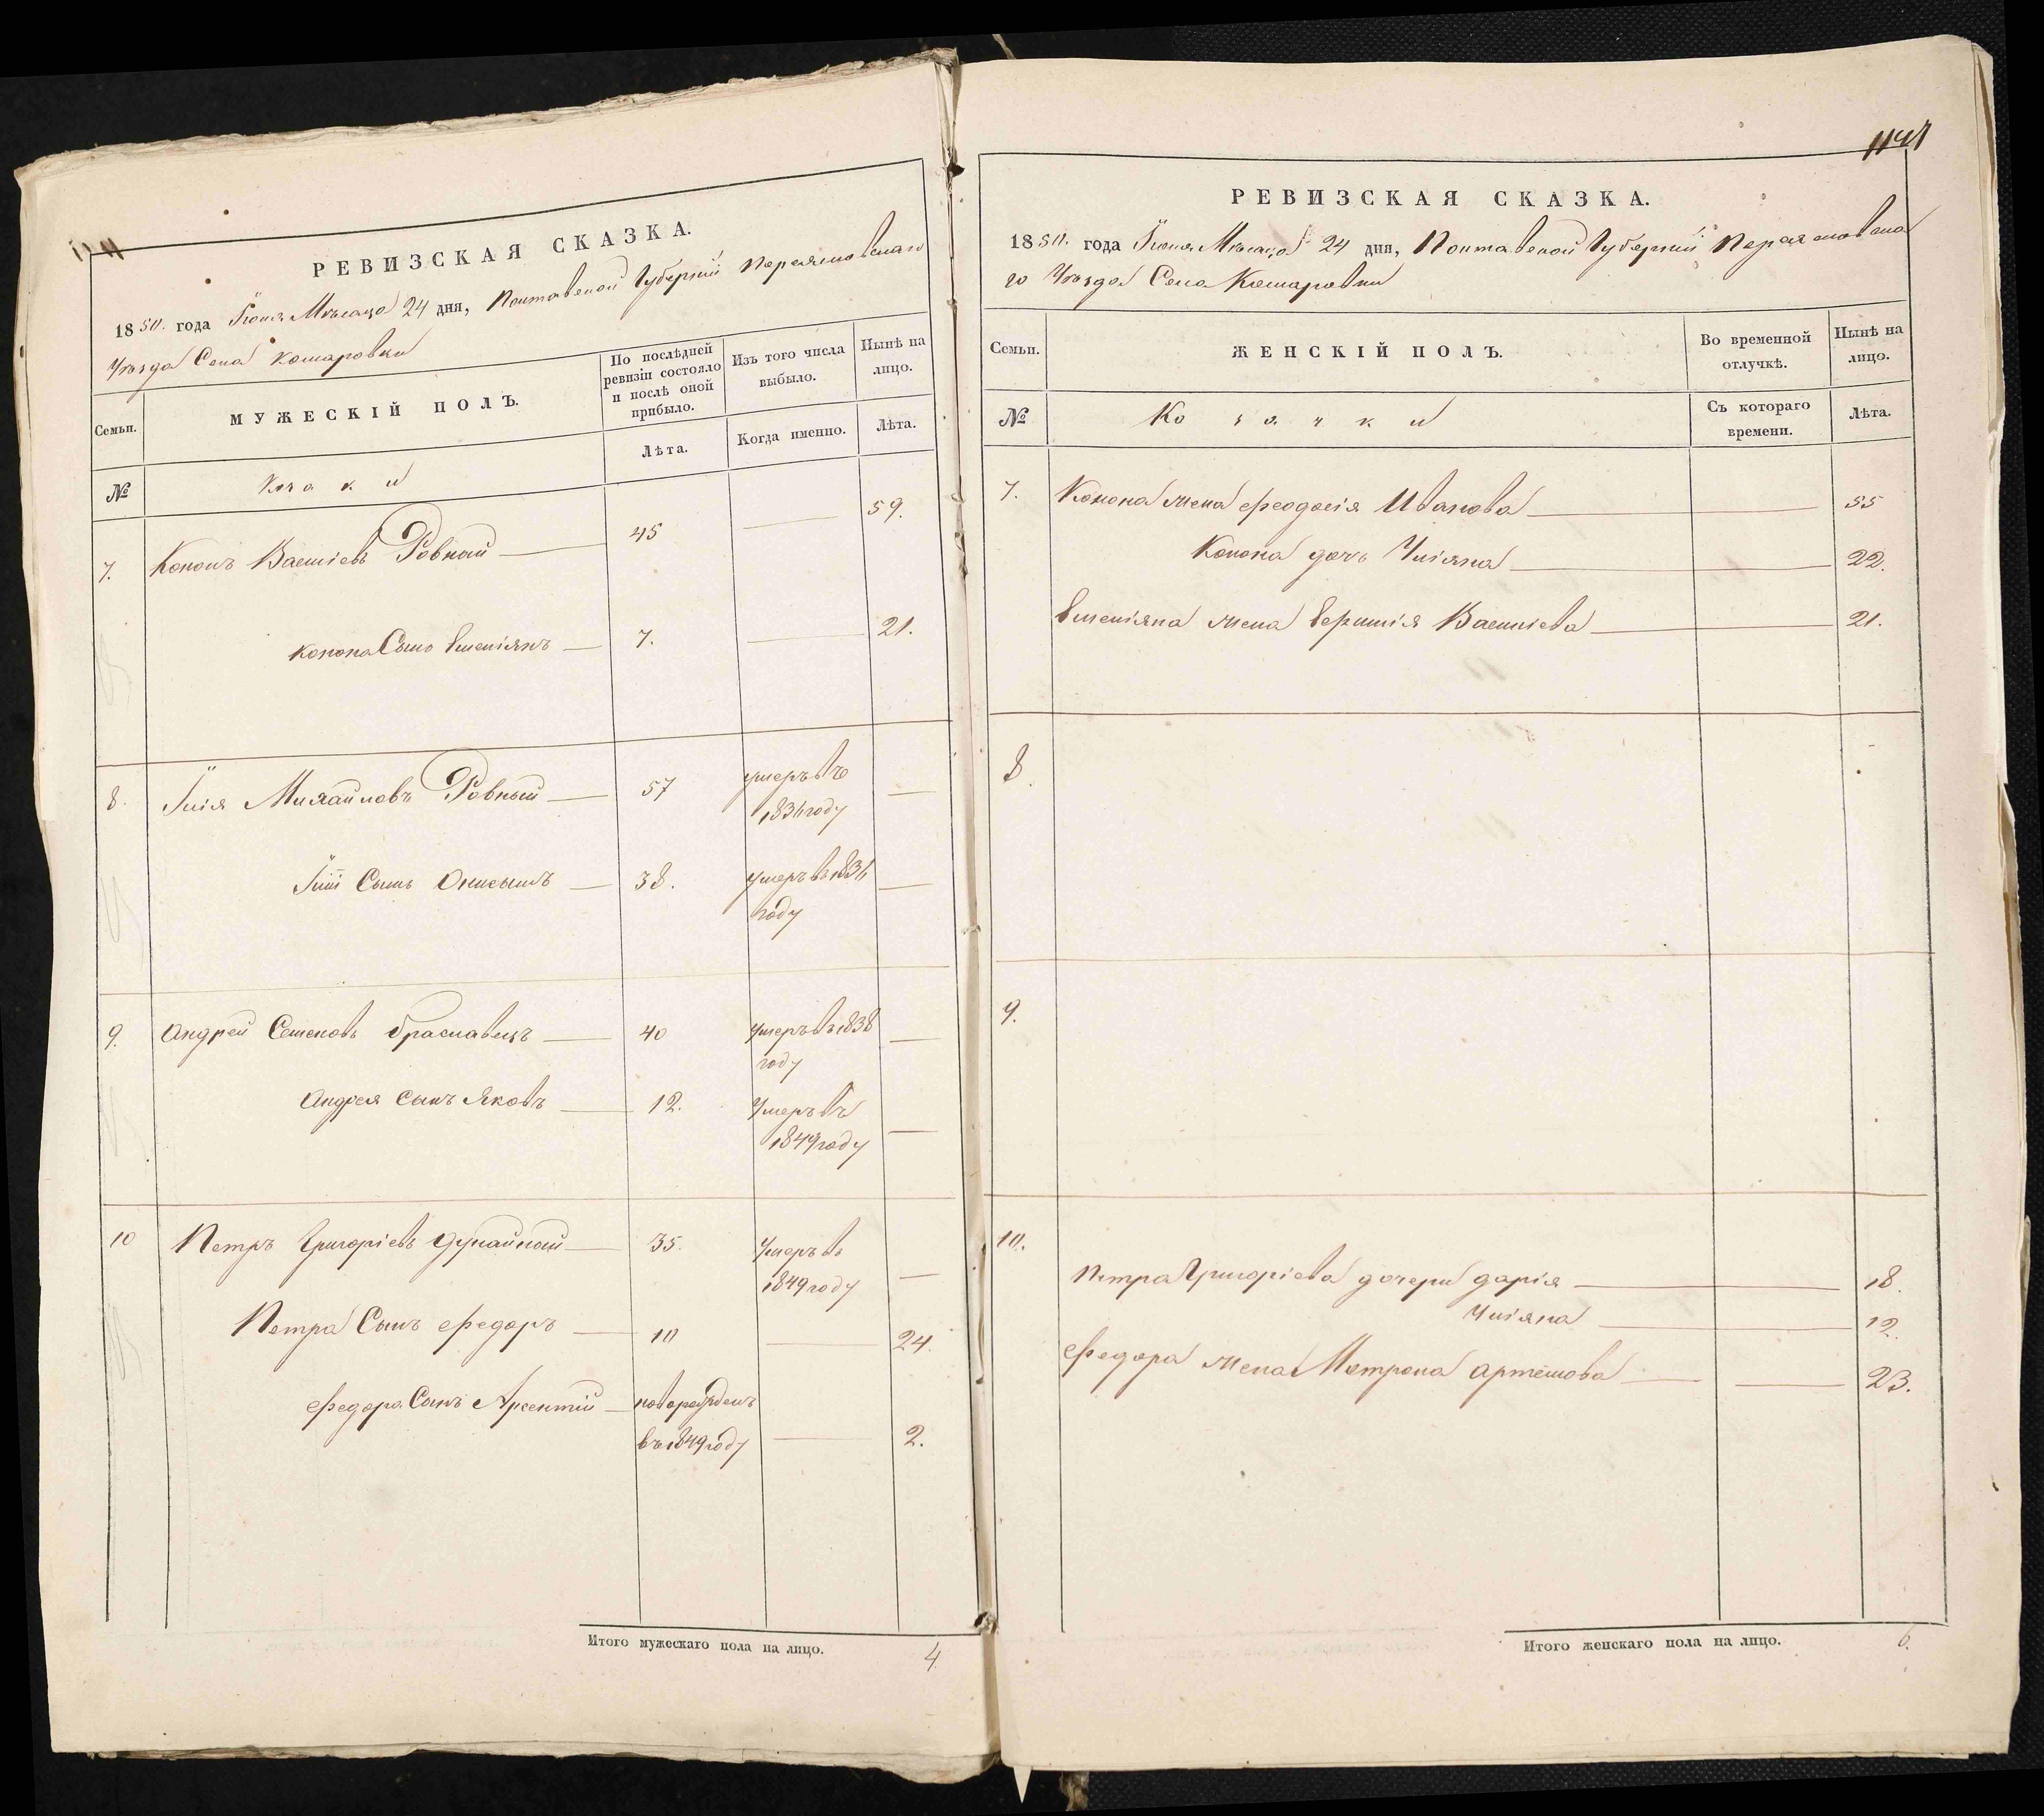 РЕВИЗСКАЯ СКАЗКА.
1850. года Іюня Мѣсяца 24 дня, Полтавской Губерніи Переясловскаго
Уѣзда Села Комаровки
Семьи. МУЖЕСКІЙ ПОЛЪ. По послѣдней ревизіи состояло и послѣ оной прибыло. Изъ того числа выбыло. Нынѣ на лицо.
№ Козаки Лѣта. Когда именно. Лѣта.
7. Кононъ Василіевъ Ровный 45 59.
Конона Сынъ 7. 21.
8. Илія Михайловъ Ровный 57 умеръ въ
году
Иліи Сынъ Онисимъ 38. умеръ въ
году
9. Андрей Семеновъ Браславецъ 40 умеръ въ 1838
году
Андрея сынъ Яковъ 12. умеръ въ
1849 году
10 Петръ Григоріевъ Дунайный 35. умеръ въ
1849 году
Петра Сынъ Федоръ 10 24.
Федора Сынъ Арсентій новорожденъ
въ 1849 году 2.
Итого мужескаго пола на лицо. 4.
РЕВИЗСКАЯ СКАЗКА.
1850. года Іюня Мѣсяца 24 дня, Полтавской Губерніи Переясловска
го Уѣзда Села Комаровки
Семьи. ЖЕНСКІЙ ПОЛЪ. Во временной отлучкѣ. Нынѣ на лицо.
№ Козачки Съ котораго времени. Лѣта.
7. Конона жена Феодосія Иванова 55
Конона дочь Уліяна 22.
жена Василіева 21.
8.
9.
10.
Петра Григоріева дочери Дарія 18.
Уліяна 12.
Федора жена Мотрона Артемова 23.
Итого женскаго пола на лицо. 6.